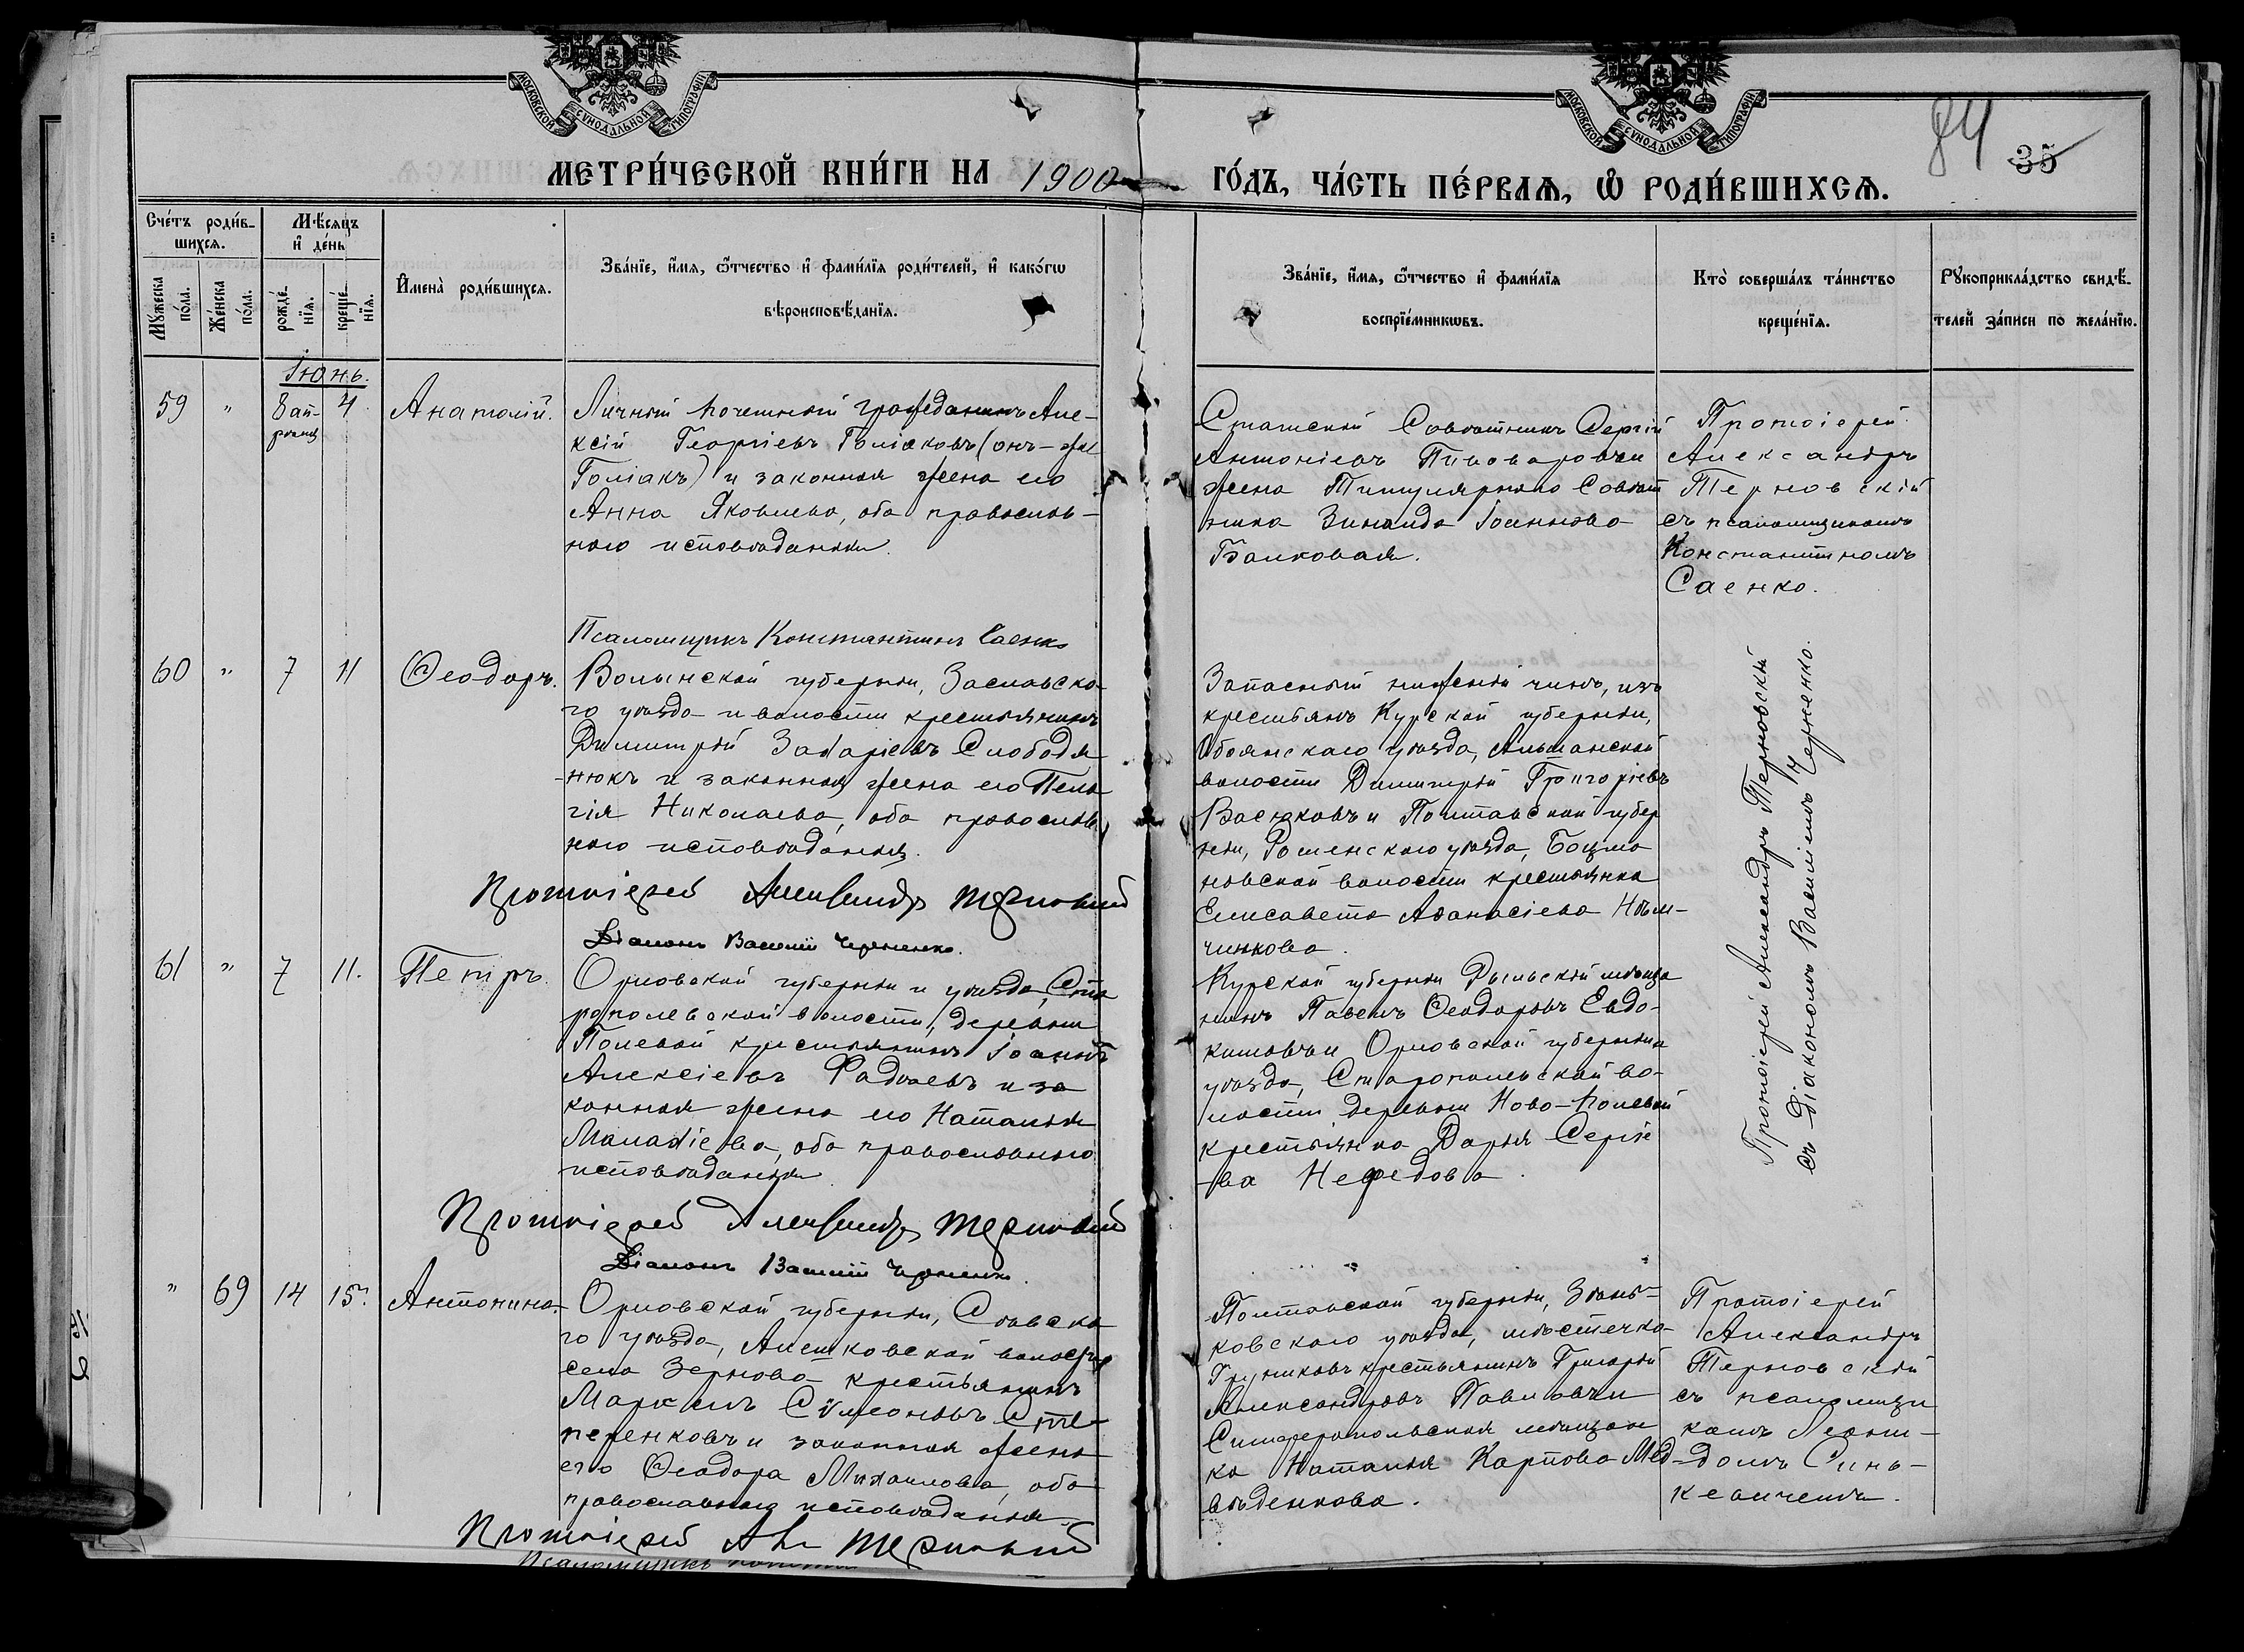 МОСКОВСКОЙ СѴНОДАЛЬНОЙ ТИПОГРАФІИ
МОСКОВСКОЙ СѴНОДАЛЬНОЙ ТИПОГРАФІИ
84 35
МЕТРИ́ЧЕСКОЙ КНИ́ГИ НА 1900
ГО́ДЪ, ЧА́СТЬ ПЕ́РВАѦ, Ѡ҆ РОДИ́ВШИХСѦ.
Сче́тъ роди́в-
шихсѧ.
Мꙋ́жеска по́ла.
Же́нска по́ла.
Мѣ́сѧцъ
и҆ де́нь
рожде́-
нїѧ.
креще́-
нїѧ.
И҆мена̀ роди́вшихсѧ.
Зва́нїе, и҆́мѧ, ѻ҆́тчество и҆ фами́лїѧ роди́телей, и҆ како́гѡ
вѣроисповѣ́данїѧ.
Зва́нїе, и҆́мѧ, ѻ҆́тчество и҆ фами́лїѧ
воспрїе́мникѡвъ.
Кто̀ соверша́лъ та́инство
креще́нїѧ.
Рꙋкоприкла́дство свидѣ́-
телей за́писи по жела́нїю.
Іюнь.
59 " 8 ап- 4 Анатолій.
рѣля
Личный почетный гражданинъ Але-
ксій Георгіевъ Голіаковъ (онъ-же
Голіакъ) и законная жена его
Анна Яковлева, оба православ-
наго исповѣданія.
Псаломщикъ Константинъ Саенко
Статскій Совѣтникъ Сергій
Антоніевъ Пивоваровъ и
жена Титулярнаго Совѣт
ника Зинаида Іоаннова
Балковая.
Протоіерей
Александръ
Терновскій
съ псаломщикомъ
Константиномъ
Саенко.
60 " 7 11 Ѳеодоръ.
Волынской губерніи, Заславска-
го уѣзда и волости крестьянинъ
Димитрій Захаріевъ Слободя
-нюкъ и законная жена его Пела
гія Николаева, оба православ
наго исповѣданія.
Протоіерей Александръ Терновскій
Діаконъ Василій Черненко.
Запасный нижній чинъ, изъ
крестьянъ Курской губерніи,
Обоянскаго уѣзда, Альшанской
волости Димитрій Григоріевъ
Васюковъ и Полтавской губер
ніи, Роменскаго уѣзда, Бацма
новской волости крестьянка
Елисавета Аѳанасіева Нѣм-
чинкова.
Протоіерей Александръ Терновскій
съ діакономъ Василіемъ Черненко.
61 " 7 11. Петръ.
Орловской губерніи и уѣзда, Ста
ропольской волости, деревни
Полевой крестьянинъ Іоаннъ
Алексіевъ Фадѣевъ и за
конная жена его Наталія
Малахіева, оба православнаго
исповѣданія.
Протоіерей Александръ Терновскій
Діаконъ Василій Черненко.
Курской губерніи Рыльскій мѣща
нинъ Павелъ Ѳеодоровъ Евдо-
кимовъ и Орловской губерніи и
уѣзда, Старопольской во-
лости деревни Ново-Полевой
крестьянка Дарія Сергіе
-ва Нефедова.
" 69 14 15. Антонина.
Орловской губерніи, Сѣвска
го уѣзда, Алешковской волости
села Зерново крестьянинъ
Маркелъ Сѵмеоновъ Сте-
перенковъ и законная жена
его Ѳеодора Михаилова, оба
православнаго исповѣданія.
Протоіерей Ал. Терновскій
Псаломщикъ
Полтавской губерніи, Зѣнь-
ковскаго уѣзда, мѣстечка
крестьянинъ Григорій
Александровъ Павловъ и
Симферопольская мѣщан
ка Наталія Карпова Мед
вѣденкова.
Протоіерей
Александръ
Терновскій
съ псаломщи
комъ Леони-
-домъ Синь-
кевичемъ.